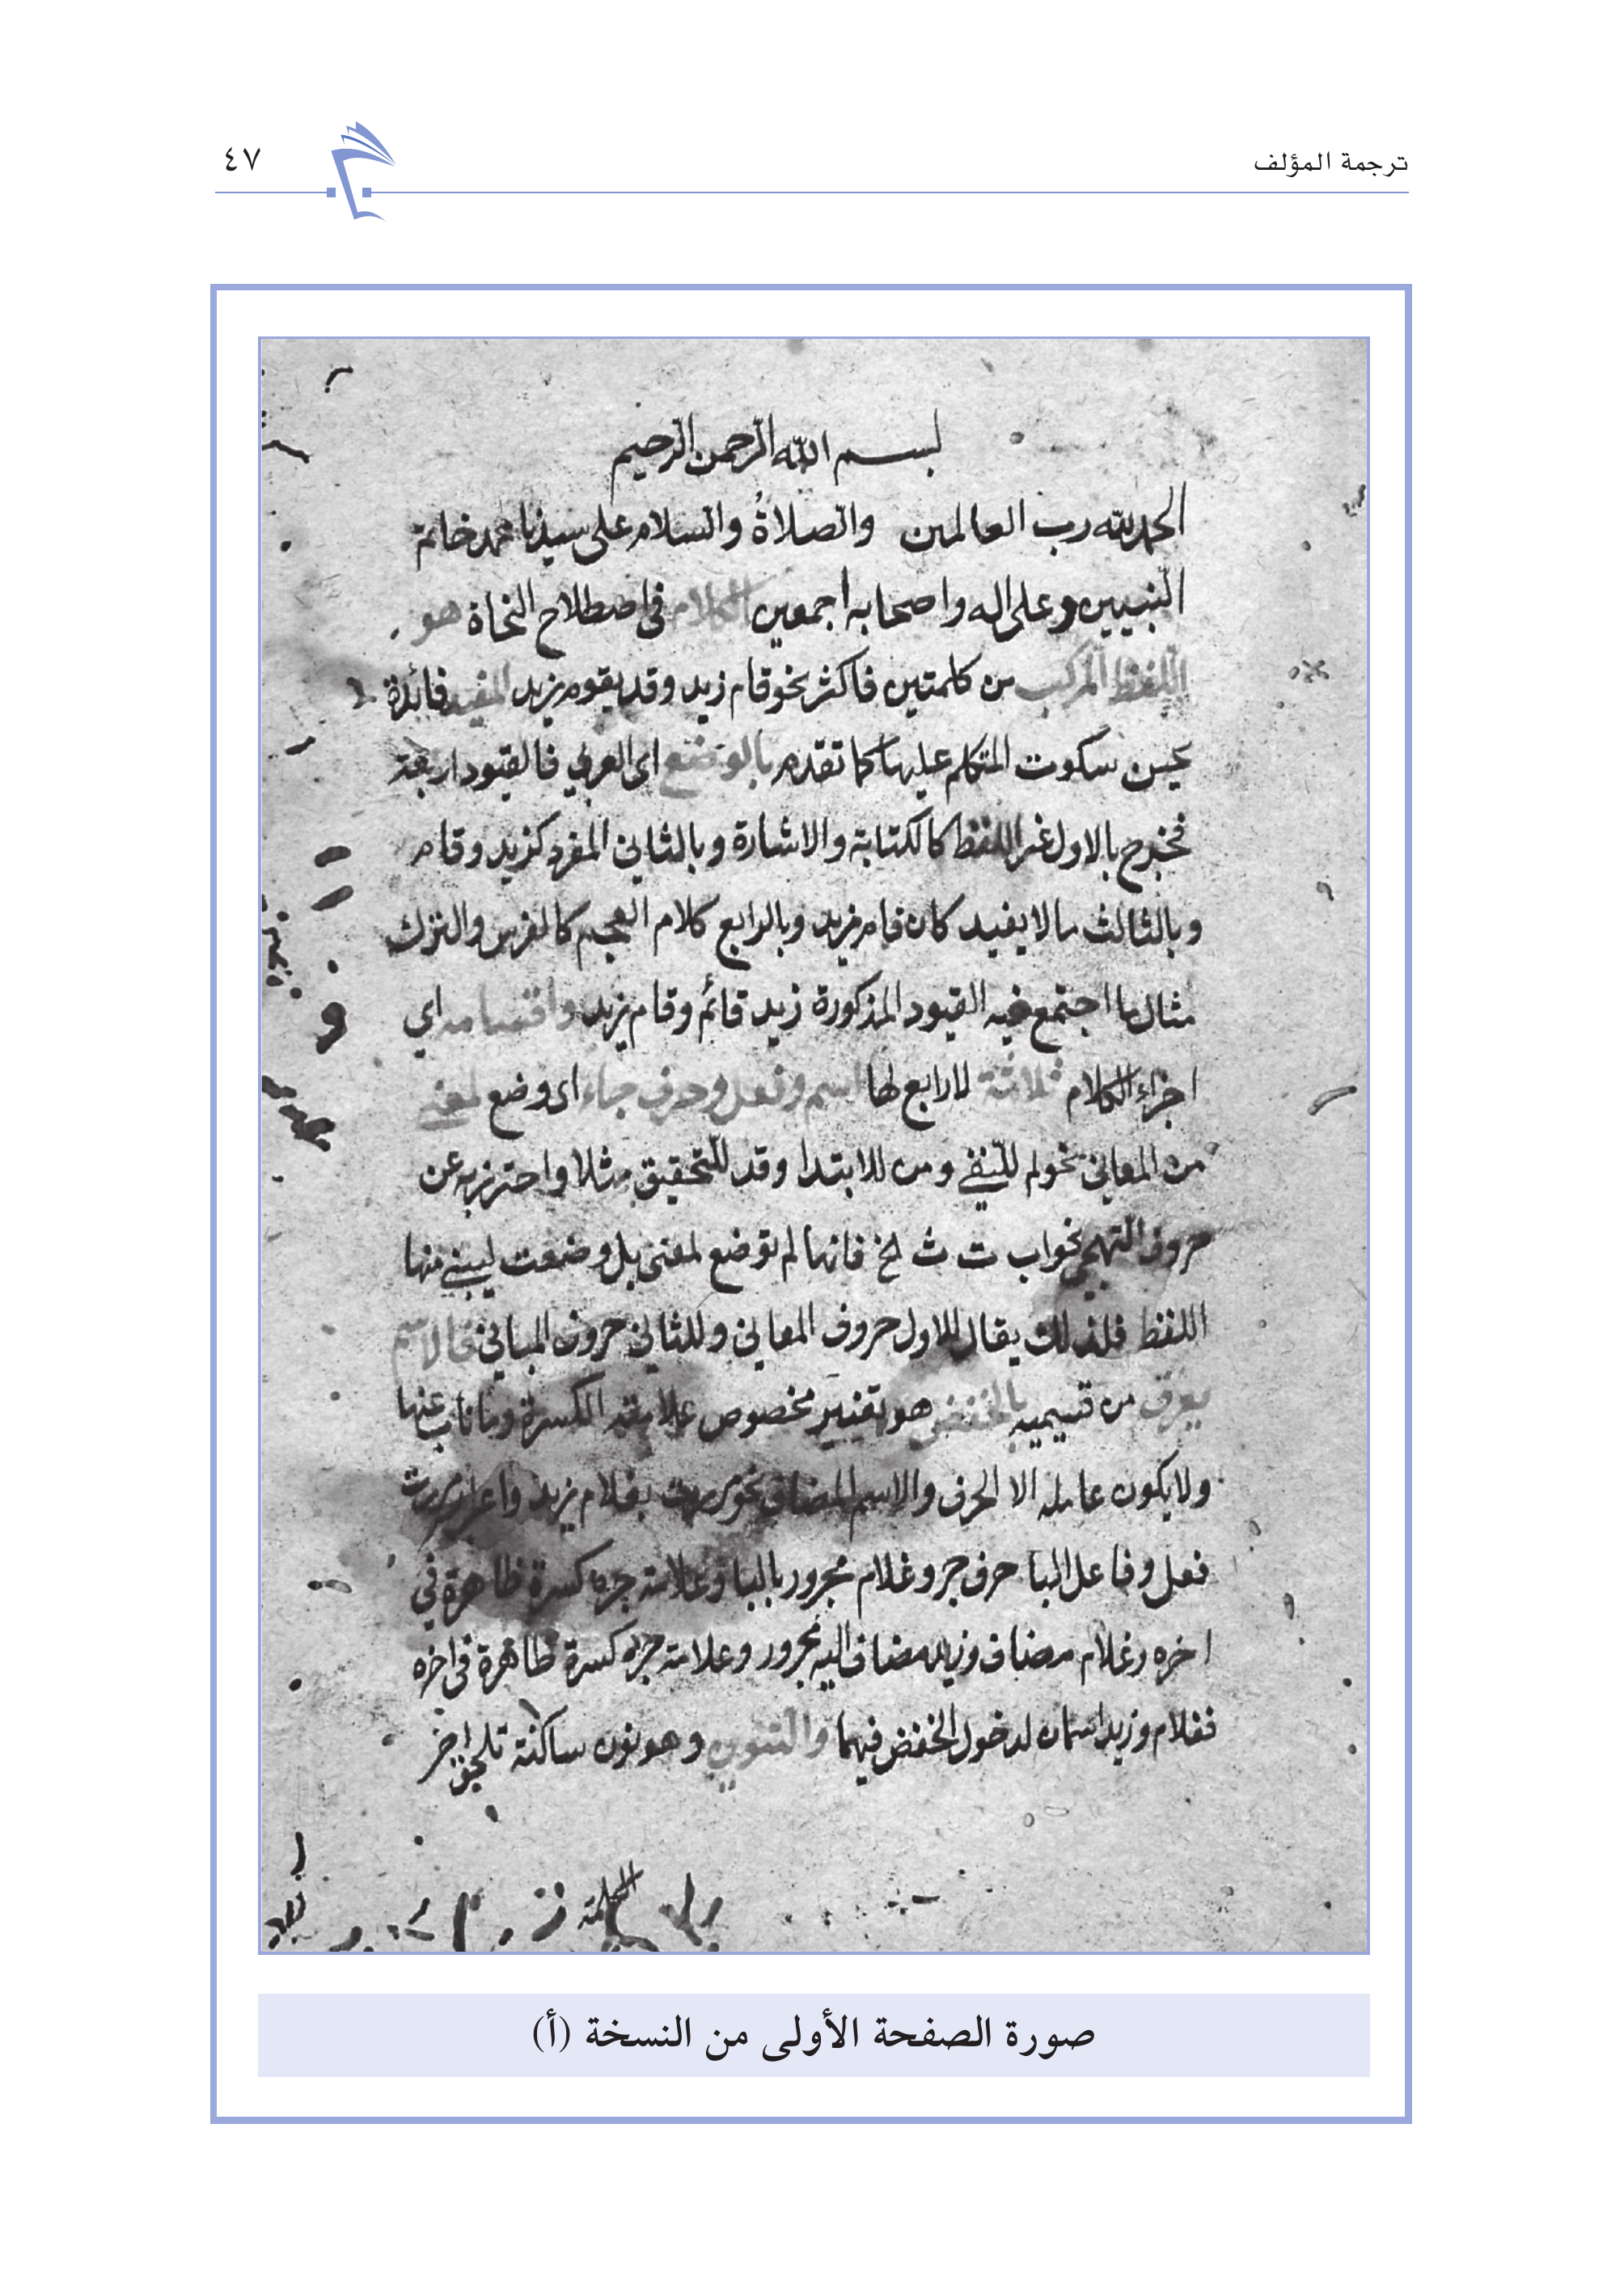 ترجمة المؤلف
٤٧
بسم الله الرحمن الرحيم
الحمد لله رب العالمين والصلاةُ والسلام على سيدنا محمد خاتم
النبيين وعلى اله واصحابه اجمعين الكلام في اصطلاح النحاة هو
اللفظ المركب من كلمتين فاكثر نحو قام زيد وقد يقوم زيد المفيد فائدة
يحسن سكوت المتكلم عليها كما تقدم بالوضع اى العربي فالقيود اربعة
فخرج بالاول غير اللفظ كالكتابة والاشارة وبالثاني المفرد كزيد وقام
وبالثالث مالا يفيد كان قام زيد وبالرابع كلام العجم كالفرس والترك
مثال ما اجتمع فيه القيود المذكورة زيد قائم وقام زيد واقسامه اي
اجزاء الكلام ثلاثة لا رابع لها اسم وفعل وحرف جاء اى وضع لمعنى
من المعاني نحو لم للنفي ومن للابتدا وقد للتحقيق مثلا واحترز به عن
حروف التهجي نحو اب ت ث لخ فانها لم توضع لمعنى بل وضعت ليبنى منها
اللفظ فلذلك يقال للاول حروف المعاني وللثاني حروف المباني فالاسم
يعرف من قسيميه بالخفض هو تغيير مخصوص علامته الكسرة وما ناب عنها
ولا يكون عامله الا الحرف والاسم المضاف نحو مررت بغلام زيد واعرابه مررت
فعل وفاعل البا حرف جر وغلام مجرور بالبا وعلامة جره كسرة ظاهرة في
اخره وغلام مضاف وزيد مضاف اليه مجرور وعلامة جره كسرة ظاهرة في اخره
فغلام وزيد اسمان لدخول الخفض فيهما والتنوين وهو نون ساكنة تلحق اخر
الكلمة
صورة الصفحة الأولى من النسخة (أ)